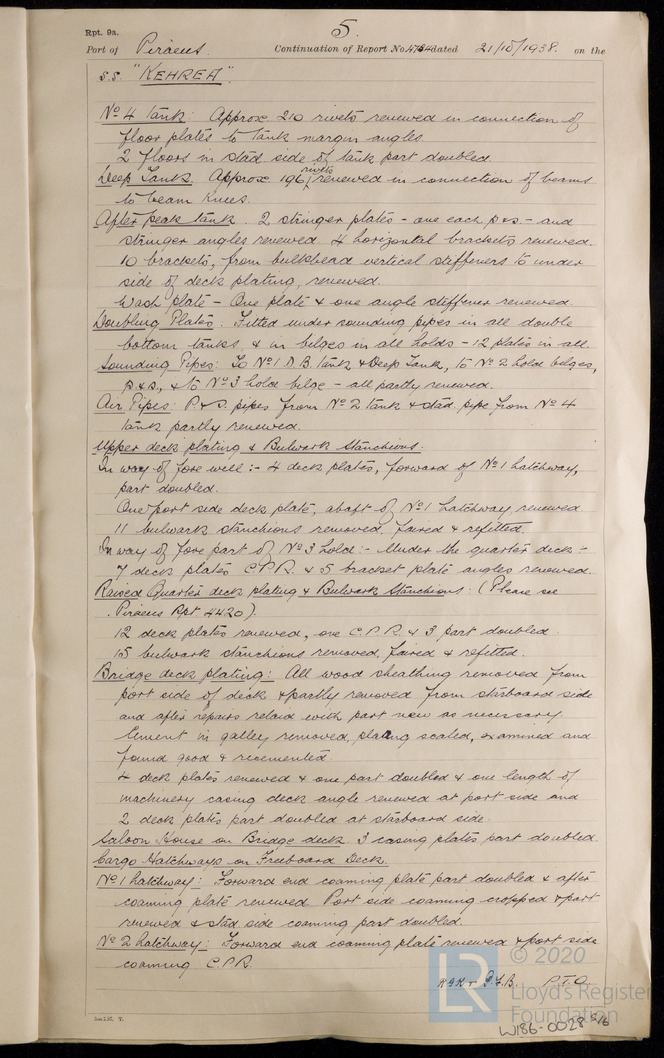 Rpt. 9a.
5.
Port of Piraeus. Continuation of Report No. 4764 dated 21/10/1938. on the
S.S. "KEHREA".
No 4 Tank: Approx. 210 rivets renewed in connection of
floor plates to tank margin angles.
2 floors in stbd side of tank part doubled.
Deep Tank. Approx 196 rivets renewed in connection of beams
to beam knees.
After peak tank. 2 stringer plates - one each p & s. - and
stringer angles renewed. 4 horizontal brackets renewed.
10 brackets, from bulkhead vertical stiffeners to under
side of deck plating, renewed.
Wash plate - One plate & one angle stiffener renewed.
Doubling Plates: Fitted under sounding pipes in all double
bottom tanks, & in bilges in all holds - 12 plates in all.
Sounding Pipes: To No 1 D.B. tank & Deep Tank, to No 2 hold bilges,
p & s., & to No 3 hold bilge - all partly renewed.
Air Pipes: P & S. pipes from No 2 tank & stbd. pipe from No 4
tank partly renewed.
Upper deck plating & Bulwark Stanchions:
In way of fore well :- 4 deck plates, forward of No 1 hatchway,
part doubled.
One port side deck plate, abaft of No 1 hatchway renewed.
11 bulwark stanchions removed, faired & refitted.
In way of fore part of No 3 hold :- Under the quarter deck -
7 deck plates C.P.R. & 5 bracket plate angles renewed.
Raised Quarter deck plating & Bulwark Stanchions: (Please see
Piraeus Rpt 4420).
12 deck plates renewed, one C.P.R. & 3 part doubled.
15 bulwark stanchions removed, faired & refitted.
Bridge deck plating: All wood sheathing removed from
port side of deck & partly removed from starboard side
and after repairs relaid with part new as necessary.
Cement in galley removed, plating scaled, examined and
found good & recemented.
4 deck plates renewed & one part doubled & one length of
machinery casing deck angle renewed at port side and
2 deck plates part doubled at starboard side.
Saloon House on Bridge deck. 3 casing plates part doubled.
Cargo Hatchways on Freeboard Deck.
No 1 hatchway: Forward end coaming plate part doubled & after
coaming plate renewed. Port side coaming cropped & part
renewed & stbd side coaming part doubled.
No 2 hatchway: Forward end coaming plate renewed & port side
coaming C.P.R.
P.T.O.
© 2020
LR
Lloyd's Register
Foundation
W186-0028 5/6